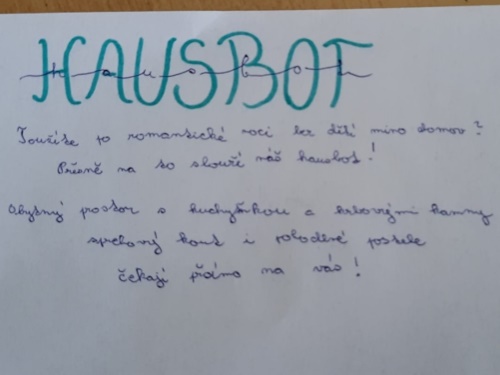 HAUSBOT
Toužíte po romantické noci bez dětí mimo domov?
Přesně na to slouží náš hausbot!
Obytný prostor s kuchyňkou a krbovými kamny
sprchový kout i rozložené postele
čekají přímo na vás!